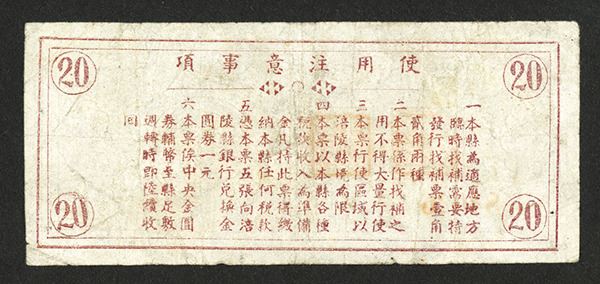 20
20
使用注意事項
一本縣為適應地方
臨時找補需要特
發行找補票壹角
貳角兩種
二本票係作找補之
用不得大量行使
三本票行使區域以
涪陵縣境為限
四本票以本縣各種
稅款收入為準備
金凡持此票得繳
納本縣任何稅款
五憑本票五張向涪
陵縣銀行兌換金
圓券一元
六本票俟中央金圓
券輔幣至縣足敷
週轉時即陸續收
回
20
20